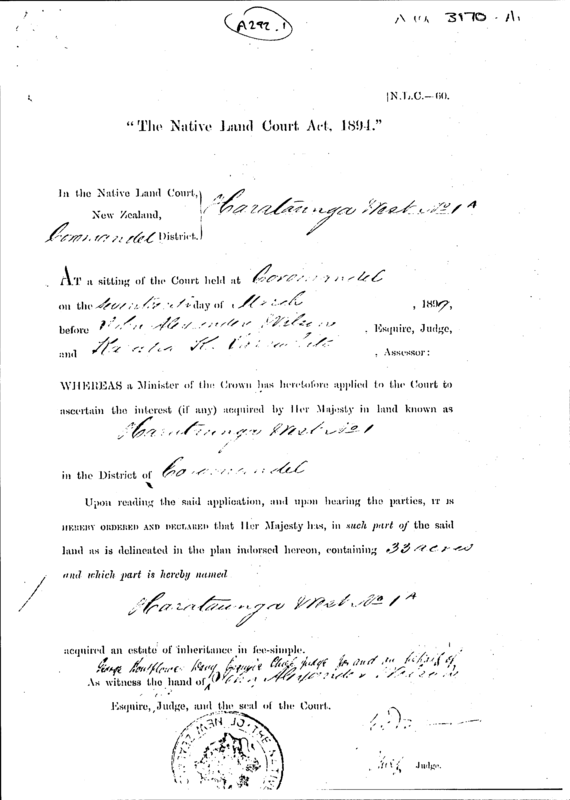 A292.1
3170 A1
N.L.C.—60.
"The Native Land Court Act, 1894."
In the Native Land Court,
New Zealand,
Coromandel District.
Harataunga West No 1A
AT a sitting of the Court held at Coromandel
on the day of March , 1897,
before John Alexander Wilson , Esquire, Judge,
and , Assessor:
WHEREAS a Minister of the Crown has heretofore applied to the Court to
ascertain the interest (if any) acquired by Her Majesty in land known as
Harataunga West No 1
in the District of Coromandel
Upon reading the said application, and upon hearing the parties, IT IS
HEREBY ORDERED AND DECLARED that Her Majesty has, in such part of the said
land as is delineated in the plan indorsed hereon, containing 33 acres
and which part is hereby named
Harataunga West No 1A
acquired an estate of inheritance in fee-simple.
George Davy Esquire Chief Judge for and on behalf of
As witness the hand of John Alexander Wilson
Esquire, Judge, and the seal of the Court.
Judge.